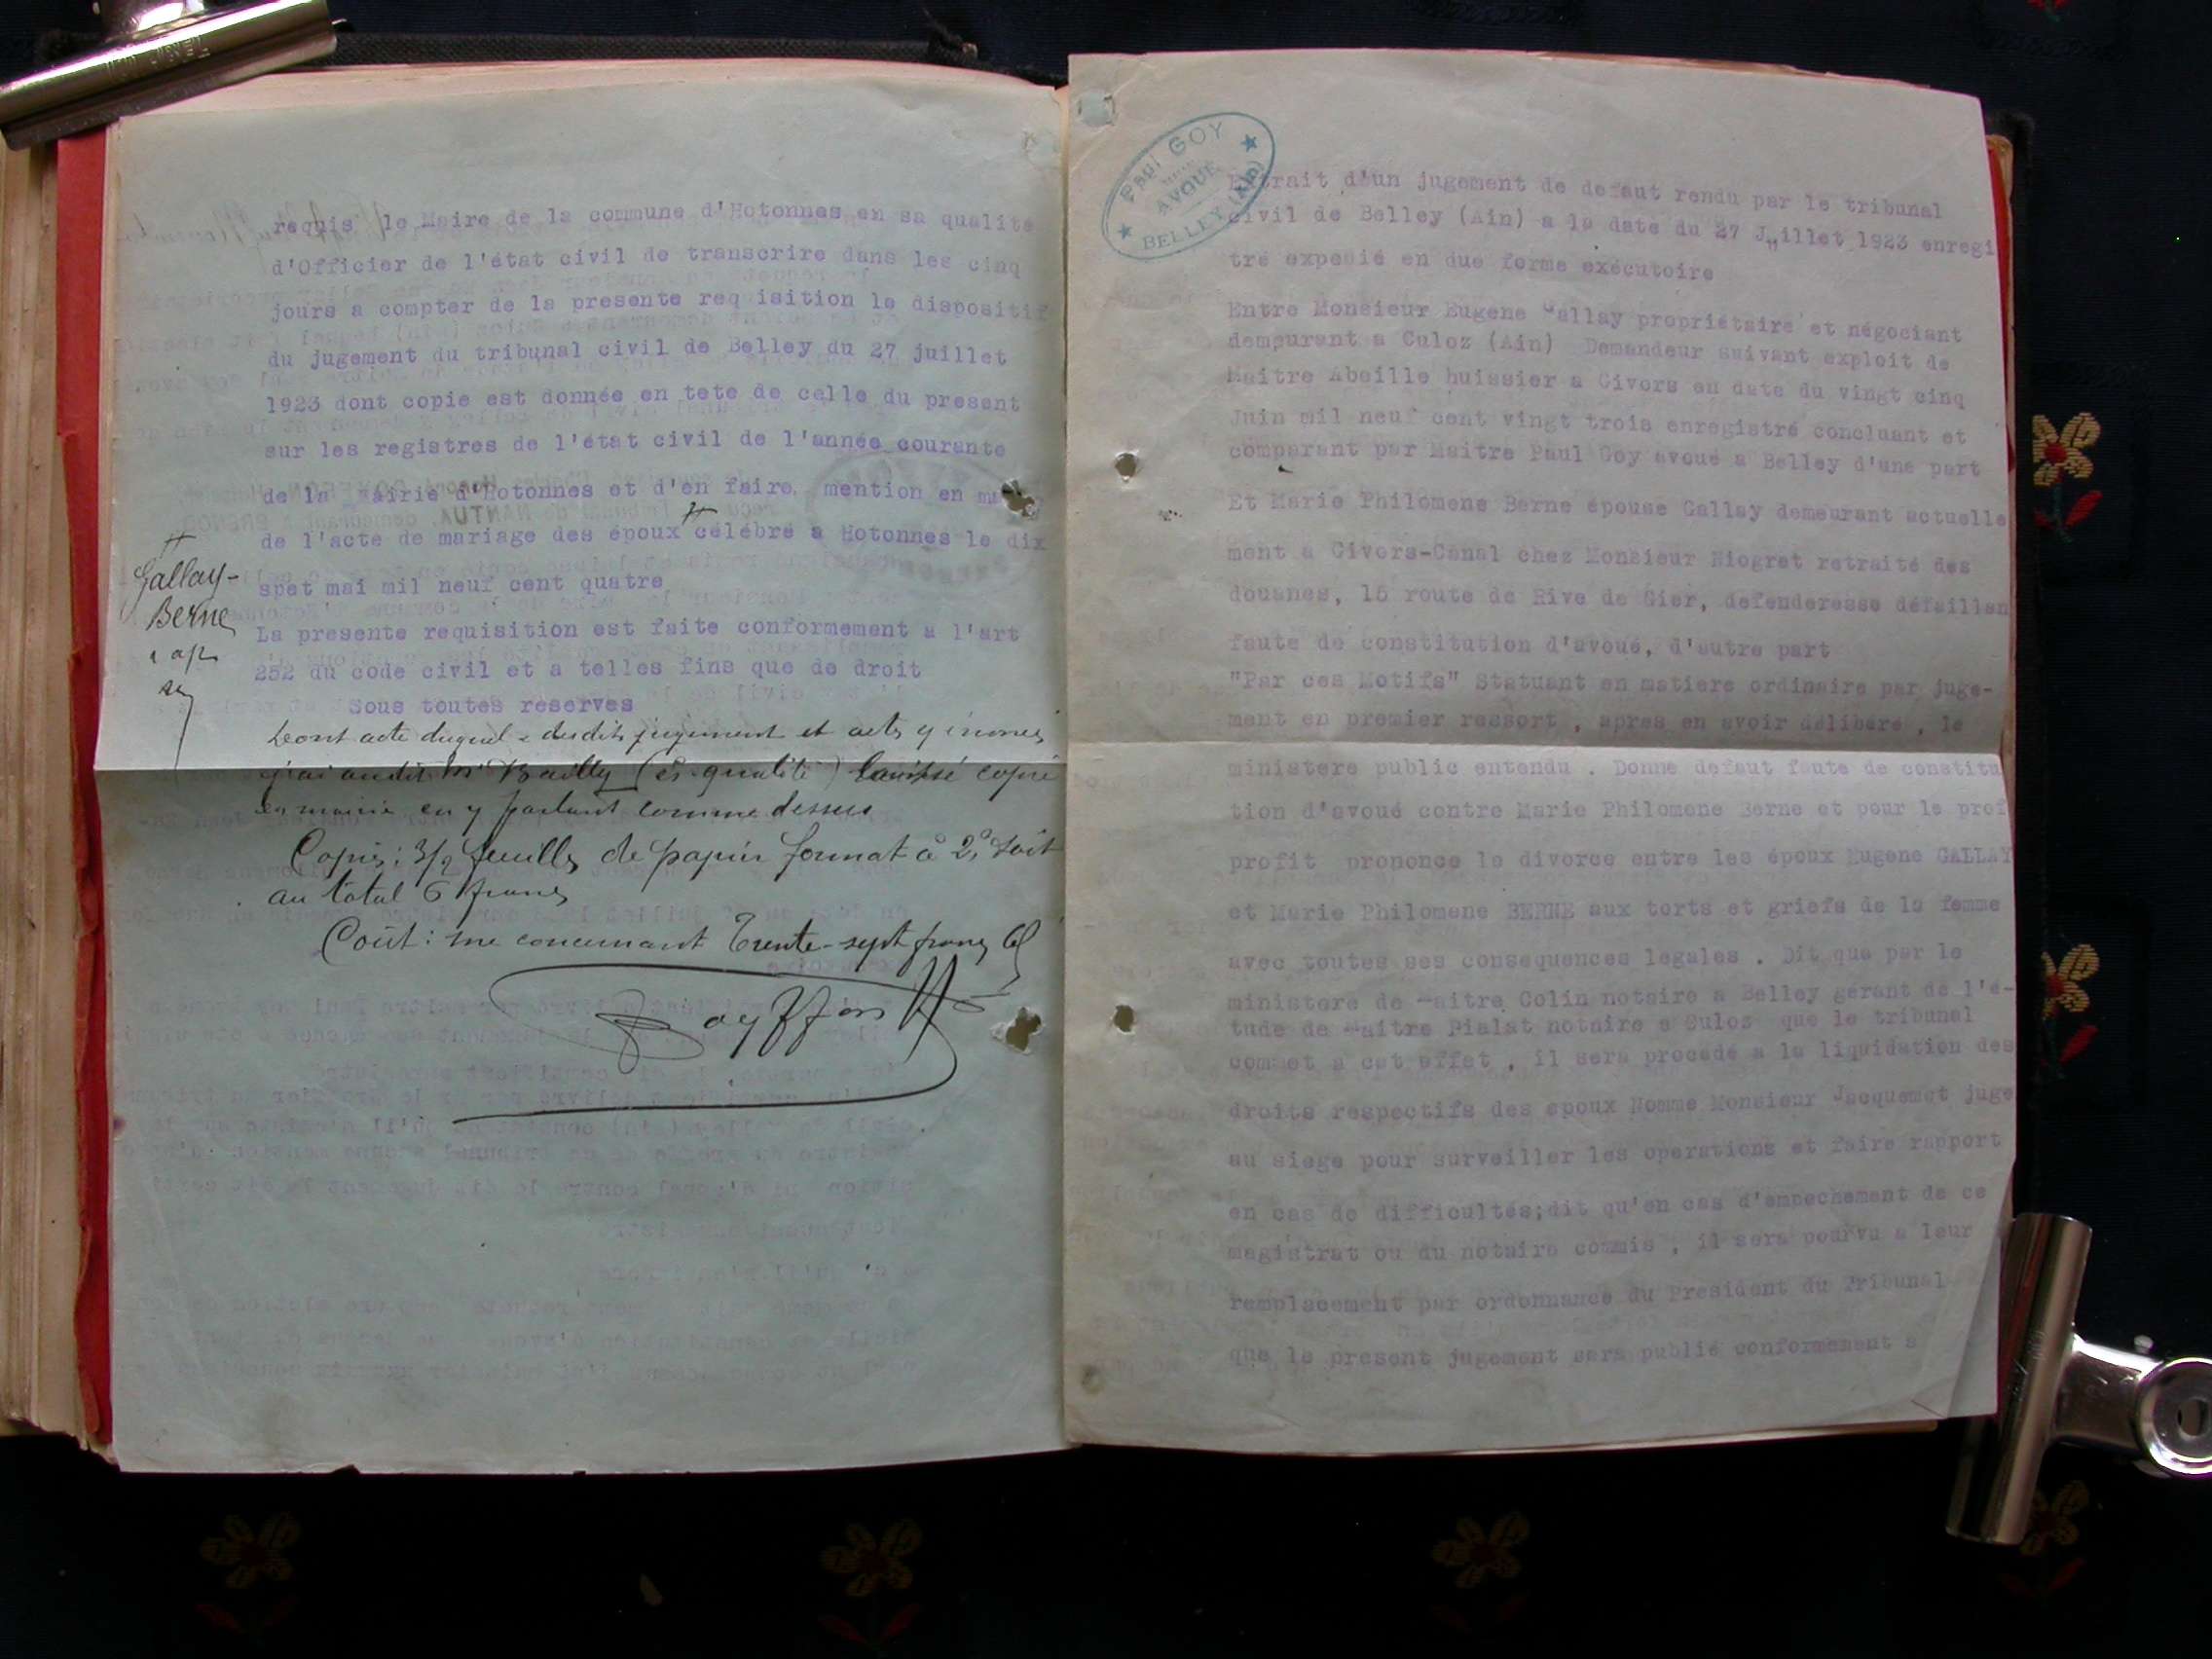 requis le Maire de la commune d'Hotonnes en sa qualité
d'Officier de l'état civil de transcrire dans les cinq
jours a compter de la presente req isition le dispositif
du jugement du tribunal civil de Belley du 27 juillet
1923 dont copie est donnée en tete de celle du present
sur les registres de l'état civil de l'année courante
de la Mairie d'Hotonnes et d'en faire mention en
de l'acte de mariage des époux # célébré a Hotonnes le dix
spet mai mil neuf cent quatre
La presente requisition est faite conformement a l'art
252 du code civil et a telles fins que de droit
Sous toutes reserves
#
Gallay-
Berne
Dont acte duquel dudit jugement et acts y énoncés
j'ai audit Mr Bailly (ès-qualité) laissé copie
en mairie en y parlant comme dessus
Copie: 3/2 feuilles de papier format à 2, soit
au total 6 francs
Coût: me concernant Trente-sept francs
Paul GOY
AVOUÉ
BELLEY (Ain)
Extrait d'un jugement de defaut rendu par le tribunal
civil de Belley (Ain) a la date du 27 Juillet 1923 enregi
tré expedié en due forme exécutoire
Entre Monsieur Eugene Gallay propriétaire et négociant
demeurant a Culoz (Ain) Demandeur suivant exploit de
Maitre Abeille huissier a Givors en date du vingt cinq
Juin mil neuf cent vingt trois enregistré concluant et
comparant par Maitre Paul Goy avoué a Belley d'une part
Et Marie Philomene Berne épouse Gallay demeurant actuelle
ment a Givors-Canal chez Monsieur Niogret retraité des
douanes, 15 route de Rive de Gier, defenderesse défaillan
faute de constitution d'avoué, d'autre part
"Par ces Motifs" Statuant en matiere ordinaire par juge-
ment en premier ressort , apres en avoir déliberé , le
ministere public entendu . Donne defaut faute de constitu
tion d'avoué contre Marie Philomene Berne et pour le prof
profit prononce le divorce entre les époux Eugene GALLAY
et Marie Philomene BERNE aux torts et griefs de la femme
avec toutes ses consequences legales . Dit que par le
ministere de Maitre Colin notaire a Belley gérant de l'é-
tude de Maitre Pialat notaire a Culoz que le tribunal
commet a cet effet , il sera procédé a la liquidation des
droits respectifs des epoux Nomme Monsieur Jacquemet juge
au siege pour surveiller les operations et faire rapport
en cas de difficultés;dit qu'en cas d'empechement de ce
magistrat ou du notaire commis , il sera pourvu a leur
remplacement par ordonnance du President du Tribunal
que le present jugement sera publié conformement a